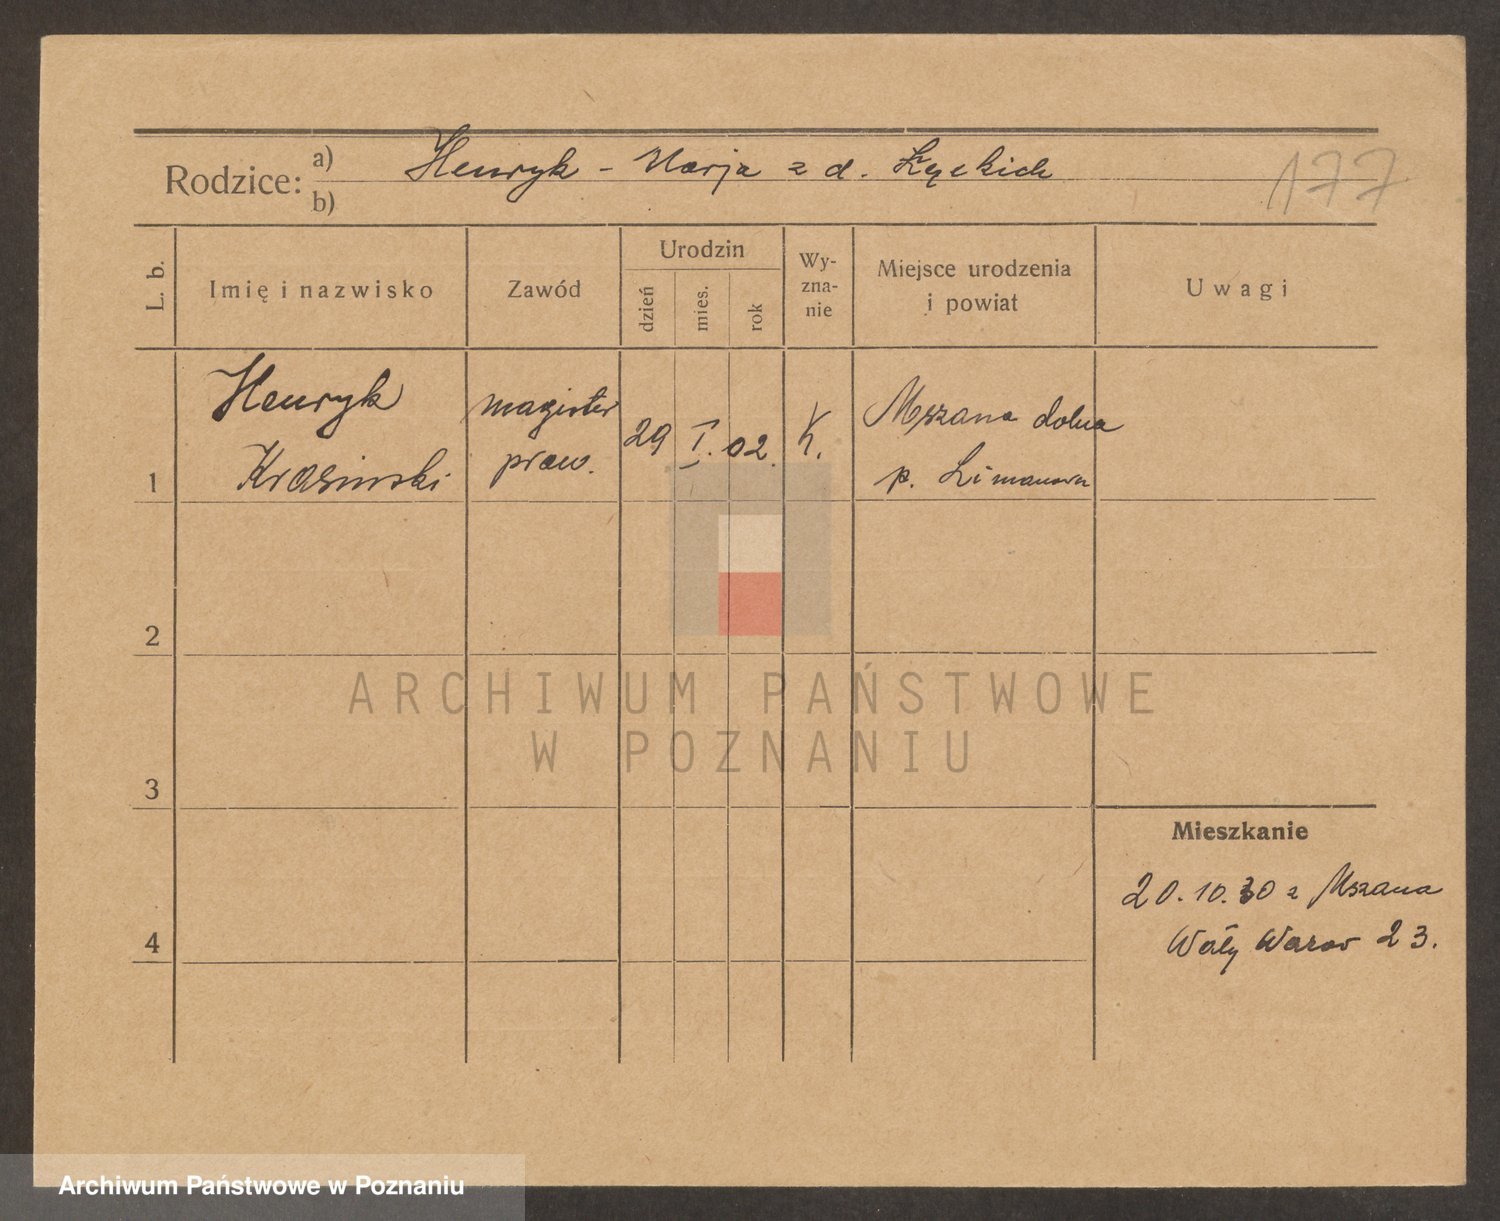 Rodzice: a) Henryk - Marja z d. Łęckich
b)
177
L. b.
Imię i nazwisko
Zawód
Urodzin
dzień
mies.
rok
Wy-
zna-
nie
Miejsce urodzenia
i powiat
Uwagi
1
Henryk
Krasinski
magister
praw.
29
I.
02.
K.
Mszana dolna
p. Limanowa
2
3
4
Mieszkanie
20.10.30 z Mszana
Wały Wazov 23.
ARCHIWUM PAŃSTWOWE
W POZNANIU
Archiwum Państwowe w Poznaniu